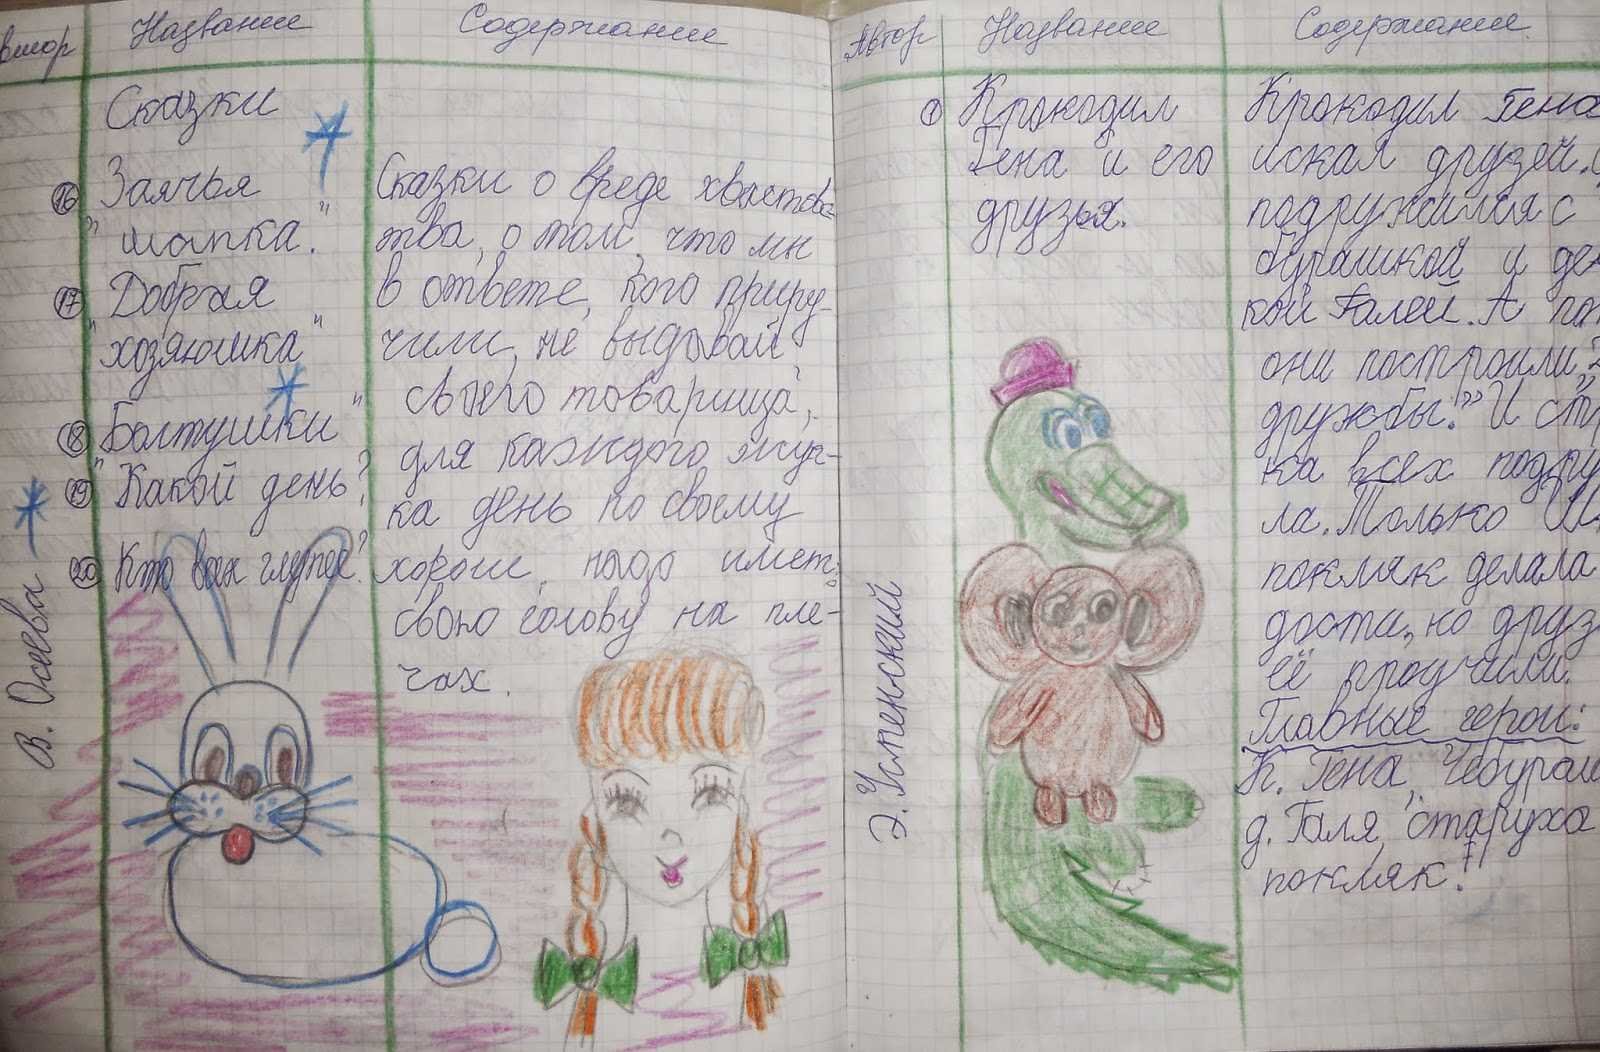 Автор Название Содержание
Сказки
16 Заячья
"шапка."
17 Добрая
"хозяюшка"
18 Болтушки"
19 "Какой день?
20 Кто всех глупее?
В. Осеева
Сказки о вреде хвастовс-
тва, о том, что мы
в ответе, кого приру-
чили, не выдавай
своего товарища,
для каждого жуч-
ка день по своему
хорош, надо имет
свою голову на пле-
чах.
Автор Название Содержание
1 Крокодил
Гена и его
друзья.
Э. Успенский
Крокодил Гена
искал друзей.
подружился с
бурашкой и дев
кой Галей. А пот
они построили
дружбы." И стр
ка всех подру
ла. Только Ша
покляк делала
дости, но друз
её проучили.
Главные герои:
К. Гена, Чебураш
д. Галя, старуха
покляк.